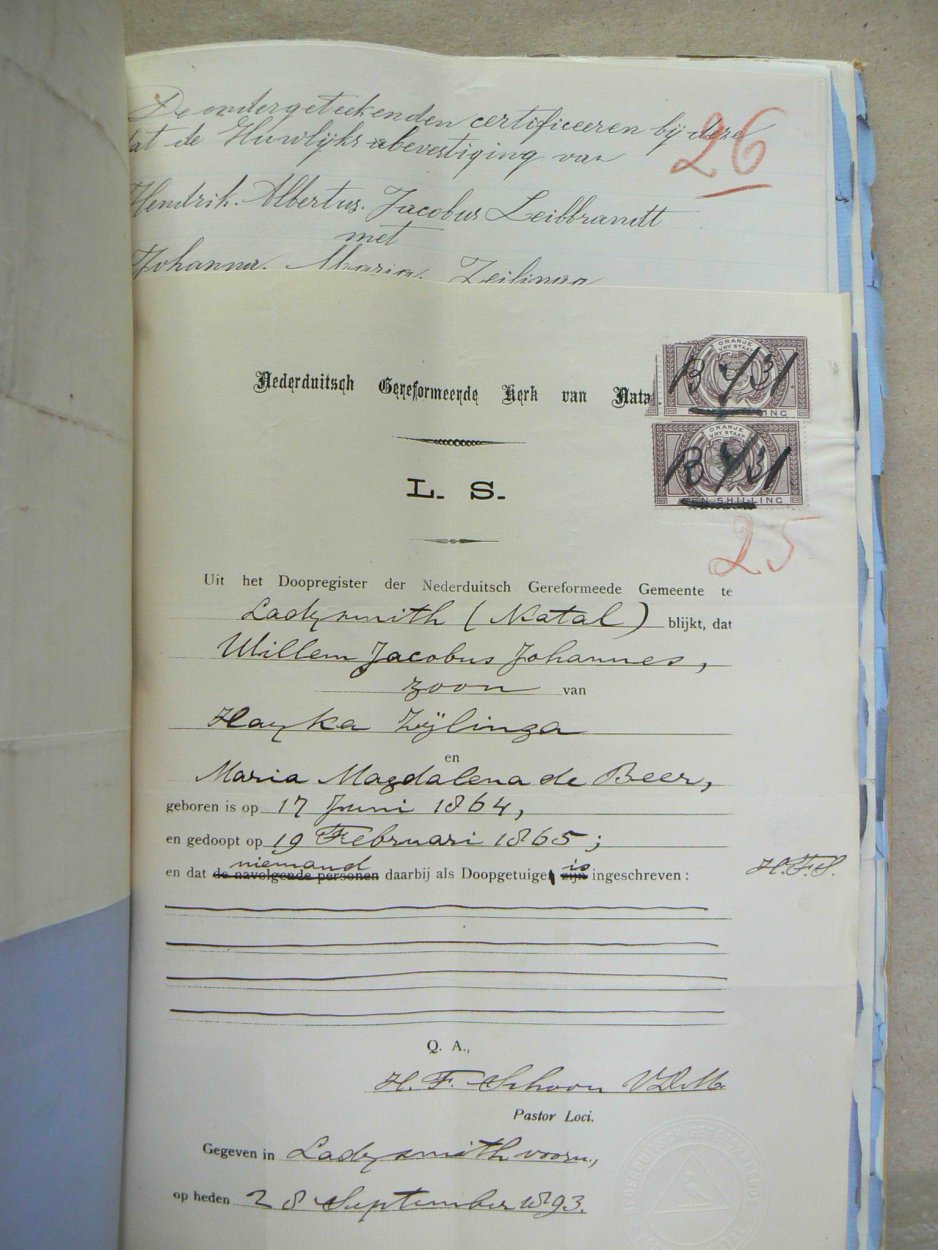 De ondergeteekenden certificeeren bij deze
dat de Huwlijks bevestiging van
26
Hendrik Albertus Jacobus Leibbrandt
met
Johanna Maria Zeilinga
Nederduitsch Gereformeerde Kerk van Nata
ORANJE
VRY STAAT
B 4/31
ORANJE
VRY STAAT
B 4/31
EEN SHILLING
L. S.
25
Uit het Doopregister der Nederduitsch Gereformeede Gemeente te
Ladysmith (Natal) blijkt, dat
Willem Jacobus Johannes,
zoon van
Hayka Zijlinga
en
Maria Magdalena de Beer,
geboren is op 17 Juni 1864,
en gedoopt op 19 Februari 1865;
niemand is
en dat de navolgende personen daarbij als Doopgetuigen zijn ingeschreven: H.F.S.
Q. A.,
H. F. Schoon V.D.M.
Pastor Loci.
Gegeven in Ladysmith voorn.,
op heden 28 September 1893.